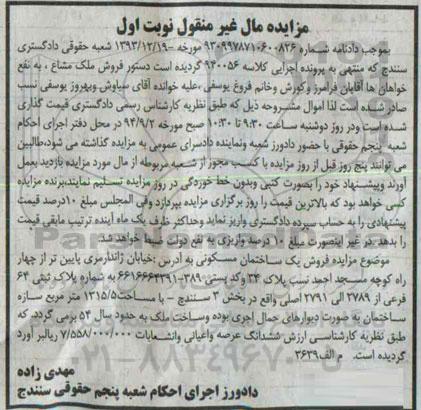 مزایده مال غیر منقول نوبت اول
بموجب دادنامه شماره ۹۳۰۹۹۷۸۷۱۰۶۰۰۸۲۶ مورخه ۱۳۹۳/۱۲/۱۹ شعبه حقوقی دادگستری
سنندج که منتهی به پرونده اجرایی کلاسه ۹۴۰۰۵۶ گردیده است دستور فروش ملک مشاع ، به نفع
خواهان ها آقایان فرامرز وکورش وخانم فروغ یوسفی ،علیه خوانده آقای سیاوش وبهروز یوسفی نسب
صادر شده است لذا اموال مشروحه ذیل که طبق نظریه کارشناس رسمی دادگستری قیمت گذاری
شده است ودر روز دوشنبه ساعت ۹:۳۰ تا ۱۰:۳۰ صبح مورخه ۹۴/۹/۲ در محل دفتر اجرای احکام
شعبه پنجم حقوقی با حضور دادورز شعبه ونماینده دادسرای عمومی به مزایده گذاشته می شود،طالبین
می توانند پنج روز قبل از روز مزایده با کسب مجوز از شعبه مربوطه از مال مورد مزایده بازدید بعمل
آورند وپیشنهاد خود را بصورت کتبی وبدون خط خوردگی در روز مزایده تسلیم نمایند،برنده مزایده
کسی خواهد بود که بالاترین قیمت را روز برگزاری مزایده بپردازد وفی المجلس مبلغ ۱۰درصد قیمت
پیشنهادی را به حساب سپرده دادگستری واریز نماید وحداکثر ظرف یک ماه آینده ترتیب مابقی قیمت
را بدهد .در غیر اینصورت مبلغ ۱۰ درصد واریزی به نفع دولت ضبط خواهد شد.
موضوع مزایده فروش یک ساختمان مسکونی به آدرس :خیابان ژاندارمری پایین تر از چهار
راه کوچه مسجد احمد نسب پلاک ۳۴ وکد پستی ۳۸۹-۶۶۱۶۶۶۴۳۹۱ به شماره پلاک ثبتی ۶۴
فرعی از ۳۷۸۹ الی ۲۷۹۱ اصلی واقع در بخش ۳ سنندج – با مساحت۱۳۱۵/۵ متر مربع سازه
ساختمان به صورت دیوارهای حمال اجری بوده وساخت ملک به حدود سال ۵۴ برمی گردد. که
طبق نظریه کارشناسی ارزش ششدانگ عرصه واعیانی وانشعابات ۷/۵۵۸/۰۰۰/۰۰۰ ریالبر اورد
گردیده است. م الف۳۶۳۹
مهدی زاده
دادورز اجرای احکام شعبه پنجم حقوقی سنندج
۰۲۱-۸۸۳۴۹۶۷۰